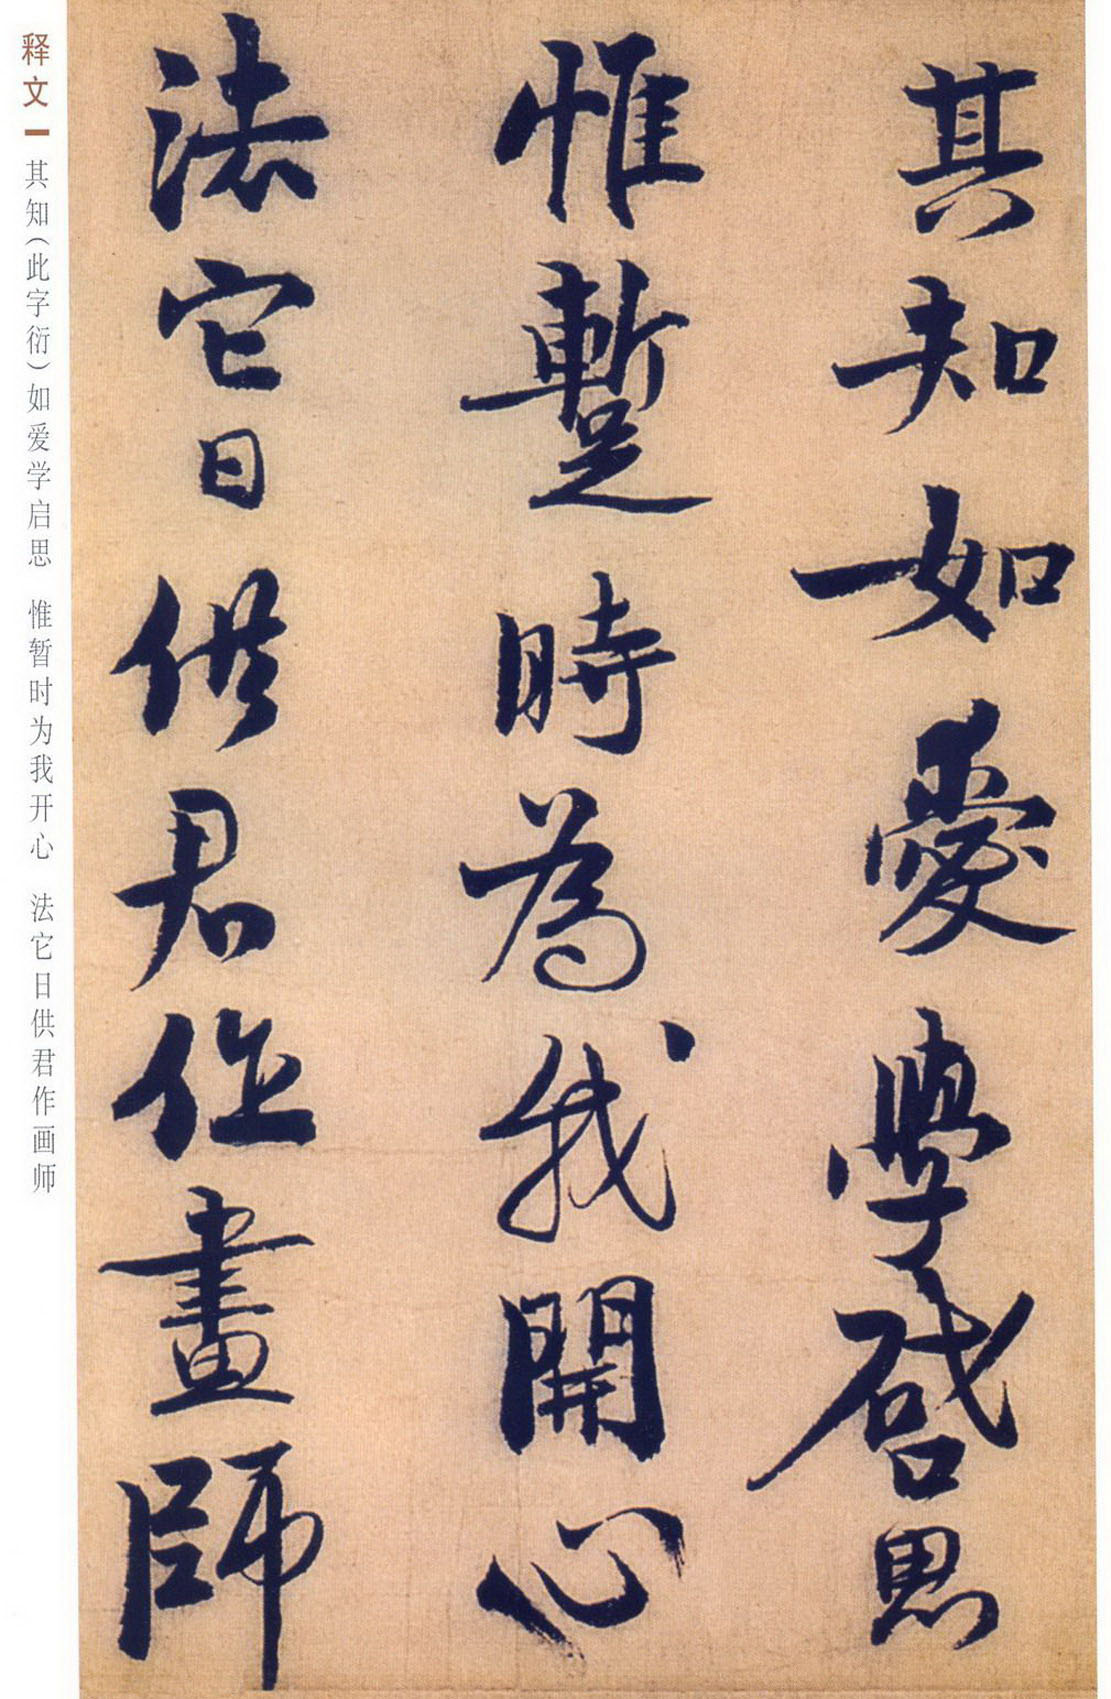 其知如爱學啓思
惟蹔時為我開心
法它日供君作畫師
释文 其知（此字衍）如爱学启思 惟暂时为我开心 法它日供君作画师